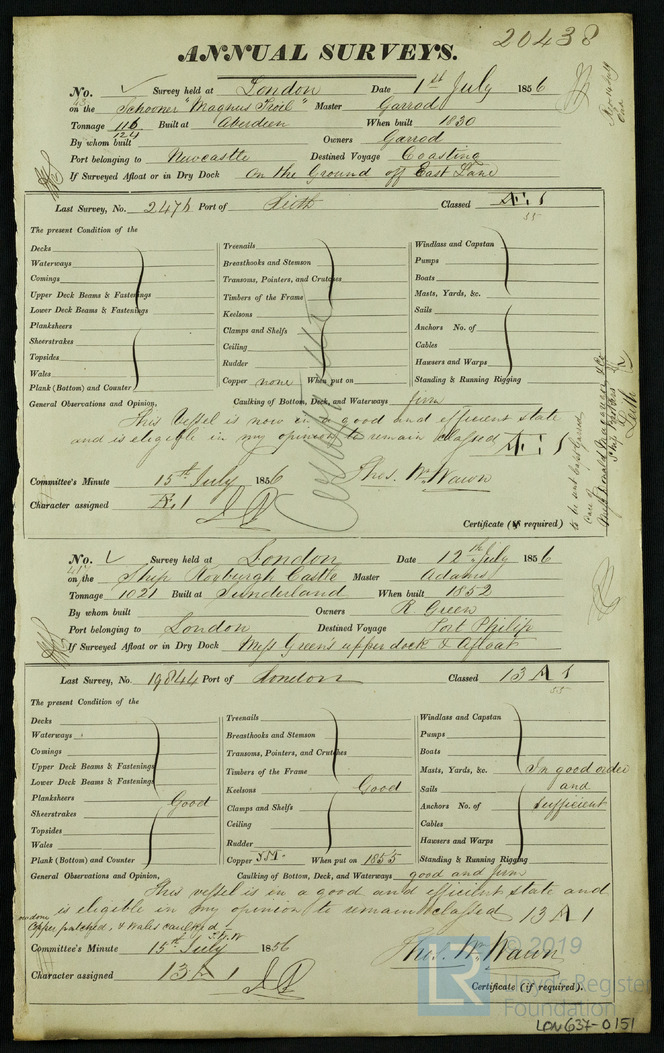 20438
ANNUAL SURVEYS.
No. ✓ Survey held at London Date 1st July 1856
on the Schooner "Magnus Troil" Master Garrod
Tonnage 116 Built at Aberdeen When built 1830
124
By whom built Owners Garrod
Port belonging to Newcastle Destined Voyage Coasting
If Surveyed Afloat or in Dry Dock On the Ground off East Lane
Last Survey, No. 2476 Port of Leith Classed Æ 1
55
The present Condition of the
Decks Treenails Windlass and Capstan
Waterways Breasthooks and Stemson Pumps
Comings Transoms, Pointers, and Crutches Boats
Upper Deck Beams & Fastenings Timbers of the Frame Masts, Yards, &c.
Lower Deck Beams & Fastenings Keelsons Sails
Planksheers Clamps and Shelfs Anchors No. of
Sheerstrakes Ceiling Cables
Topsides Rudder Hawsers and Warps
Wales Copper none When put on Standing & Running Rigging
Plank (Bottom) and Counter
General Observations and Opinion, Caulking of Bottom, Deck, and Waterways firm
This Vessel is now in a good and efficient state
and is eligible in my opinion to remain classed Æ 1
Committee's Minute 15th July 1856 Thos. Wm. Wawn
Character assigned Æ 1
Certificate (if required)
to be sent
care of
Leith
No. ✓ Survey held at London Date 12th July 1856
on the Ship Roxburgh Castle Master Adams
Tonnage 1021 Built at Sunderland When built 1852
By whom built Owners R Green
Port belonging to London Destined Voyage Port Philip
If Surveyed Afloat or in Dry Dock Mess Greens upper dock & Afloat
Last Survey, No. 19844 Port of London Classed 13 A 1
55
The present Condition of the
Decks Treenails Windlass and Capstan
Waterways Breasthooks and Stemson Pumps
Comings Transoms, Pointers, and Crutches Boats
Upper Deck Beams & Fastenings Timbers of the Frame Masts, Yards, &c. In good order
Lower Deck Beams & Fastenings Keelsons Good Sails and
Planksheers Good Clamps and Shelfs Anchors No. of sufficient
Sheerstrakes Ceiling Cables
Topsides Rudder Hawsers and Warps
Wales Copper When put on 1855 Standing & Running Rigging
Plank (Bottom) and Counter
General Observations and Opinion, Caulking of Bottom, Deck, and Waterways good and firm
This vessel is in a good and efficient state and
is eligible in my opinion to remain classed 13 A 1
Copper patched, & Wales caulked
T.W.W
Committee's Minute 15th July 1856 Thos. Wm. Wawn
Character assigned 13 A 1
Certificate (if required).
LR © 2019
Lloyd's Register
Foundation
LON637-0151